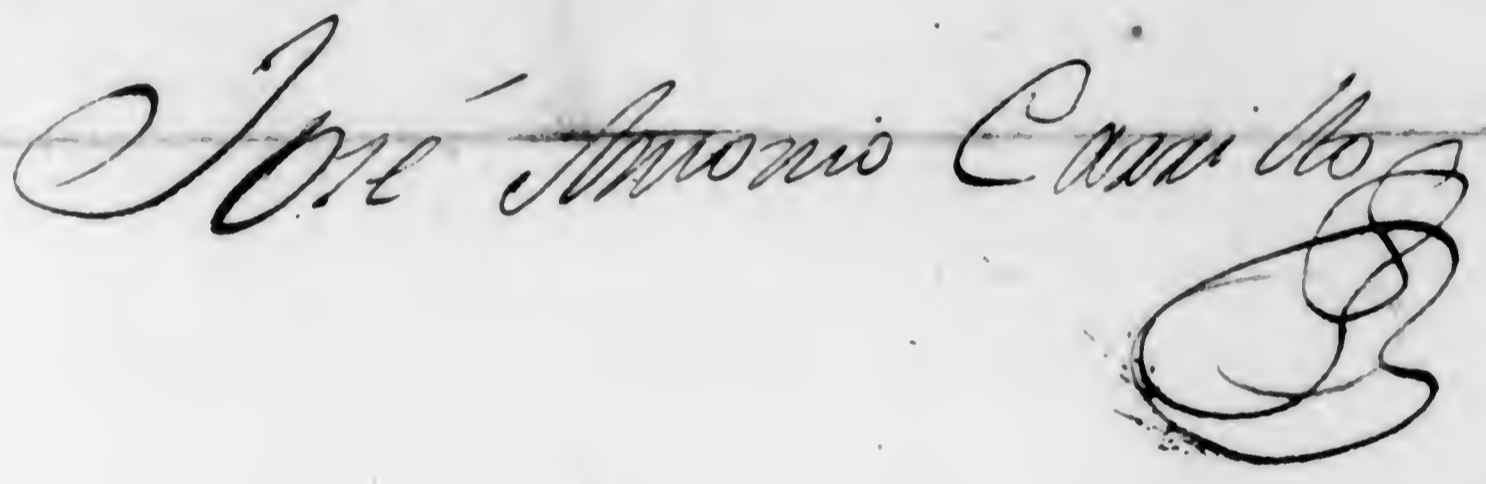 José Antonio Carrillo